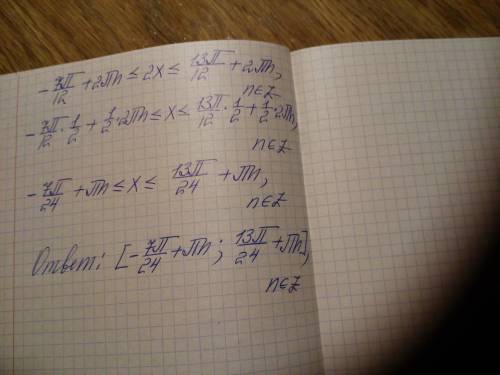 -7π/12 + 2πn ≤ 2x ≤ 13π/12 + 2πn,
n∈Z
-7π/12 · 1/2 + 1/2 · 2πn ≤ x ≤ 13π/12 · 1/2 + 1/2 · 2πn,
n∈Z
-7π/24 + πn ≤ x ≤ 13π/24 + πn,
n∈Z
Ответ: [-7π/24 + πn; 13π/24 + πn],
n∈Z